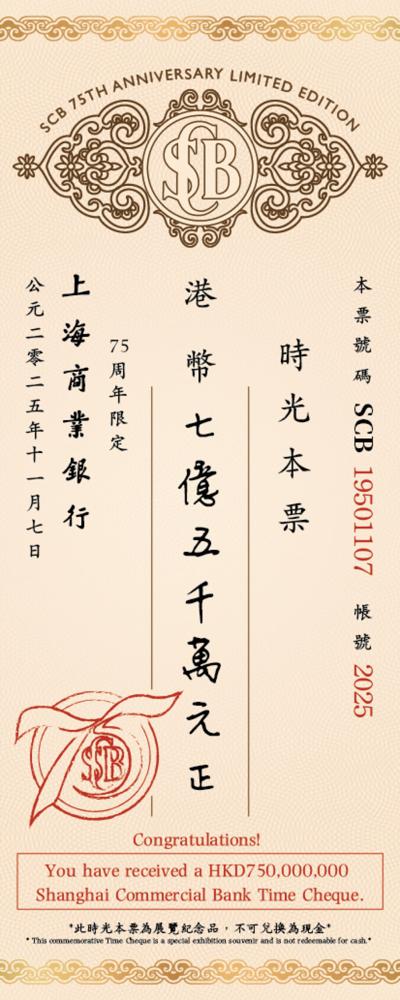 SCB 75TH ANNIVERSARY LIMITED EDITION
SCB
本票號碼 SCB 19501107 帳號 2025
時光本票
港幣七億五千萬元正
75周年限定
上海商業銀行
公元二零二五年十一月七日
75
SCB
Congratulations!
You have received a HKD750,000,000
Shanghai Commercial Bank Time Cheque.
*此時光本票為展覽紀念品，不可兌換為現金*
*This commemorative Time Cheque is a special exhibition souvenir and is not redeemable for cash.*